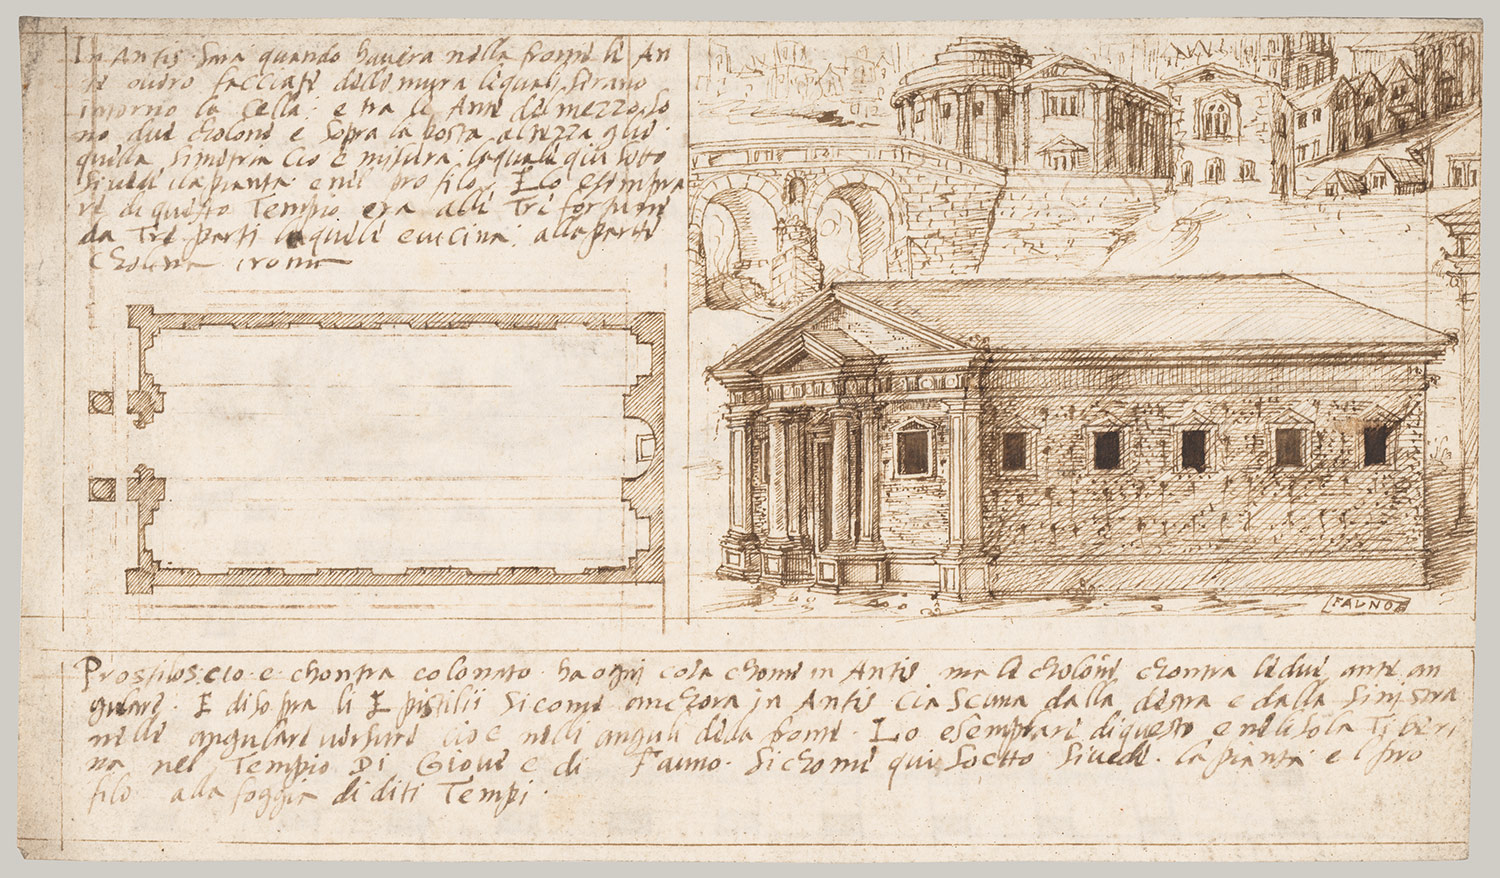 In Antis sara quando havera nella fronte le An
te overo facciate delle mura lequali serano
intorno la Cella: e tra le Ante de mezzo so
no due cholone e sopra la posta altezza gli e
quella simetria cio e misura laquale qui sotto
si vede la pianta e nel profilo. Lo esempra
re di questo Tempio era alle Tre fortune
da Tre parti laquele e vicina alla parte
Cholina
Prostilos cio e chontra colonato ha ogni cosa chome in Antis ma le cholone chontra le due ante an
gulare. E di sopra li Epistilii si come anchora in Antis ciascuna dalla destra e dalla sinistra
nelle angulare versure cio e nelli anguli della fronte. Lo esemprare di questo e nelisola Tiberi
na nel Tempio Di Giove e di Fauno. Sichome qui sootto si vede la pianta e l pro
filo alla foggia di diti Tempi.
FAUNO